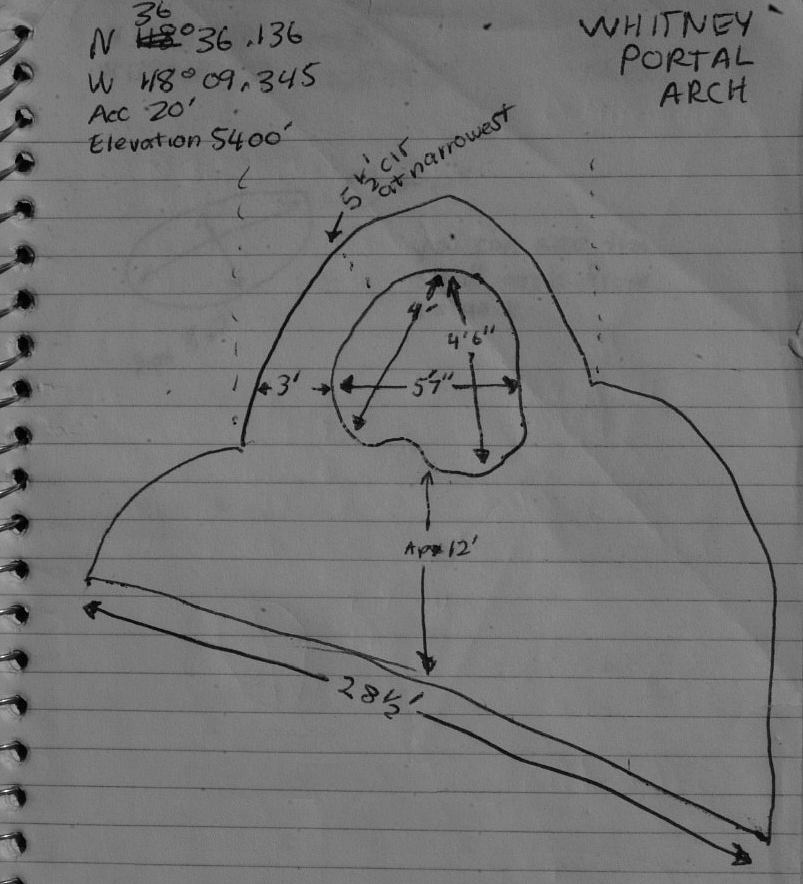 36
N 48° 36.136
W 118° 09.345
Acc 20'
Elevation 5400'
WHITNEY
PORTAL
ARCH
5 ½' cir
at narrowest
4'
4'6"
3'
5'7"
Apx 12'
28 ½'